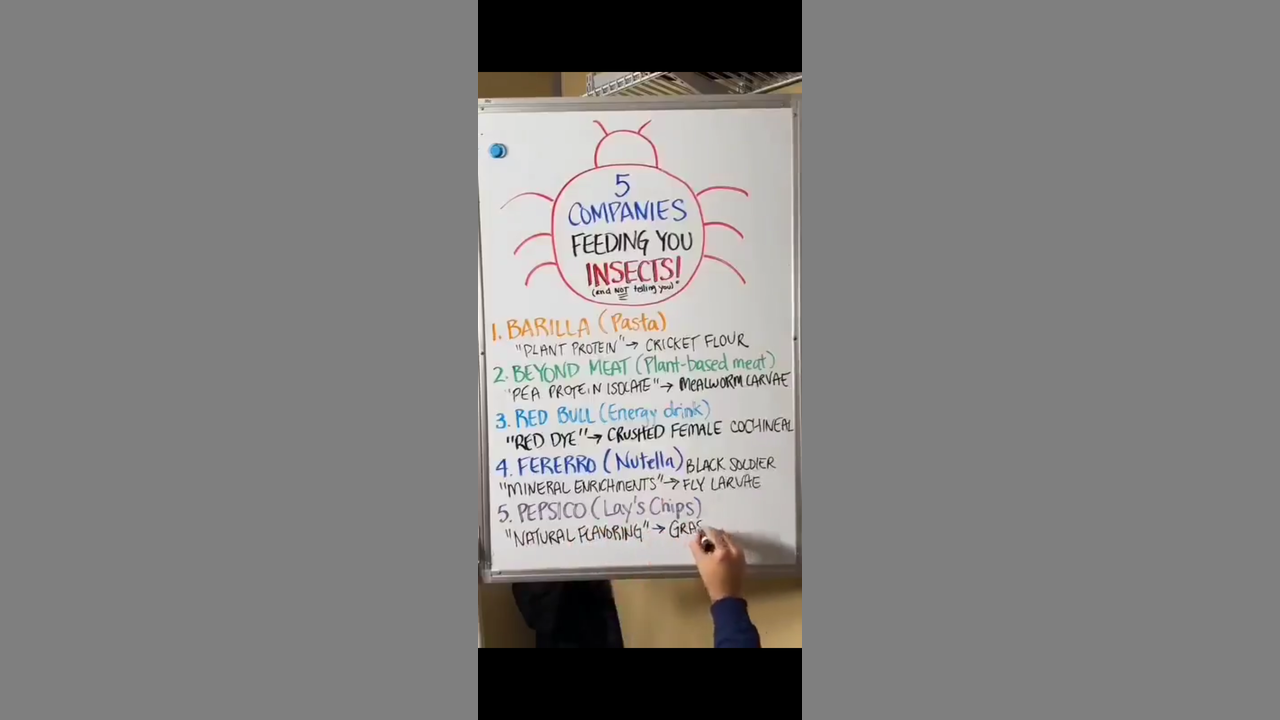 5
COMPANIES
FEEDING YOU
INSECTS!
(and NOT telling you)*
1. BARILLA (Pasta)
"PLANT PROTEIN" → CRICKET FLOUR
2. BEYOND MEAT (Plant-based meat)
"PEA PROTEIN ISOLATE" → MEALWORM LARVAE
3. RED BULL (Energy drink)
"RED DYE" → CRUSHED FEMALE COCHINEAL
4. FERERRO (Nutella) BLACK SOLDIER
"MINERAL ENRICHMENTS" → FLY LARVAE
5. PEPSICO (Lay's Chips)
"NATURAL FLAVORING" → GRAS